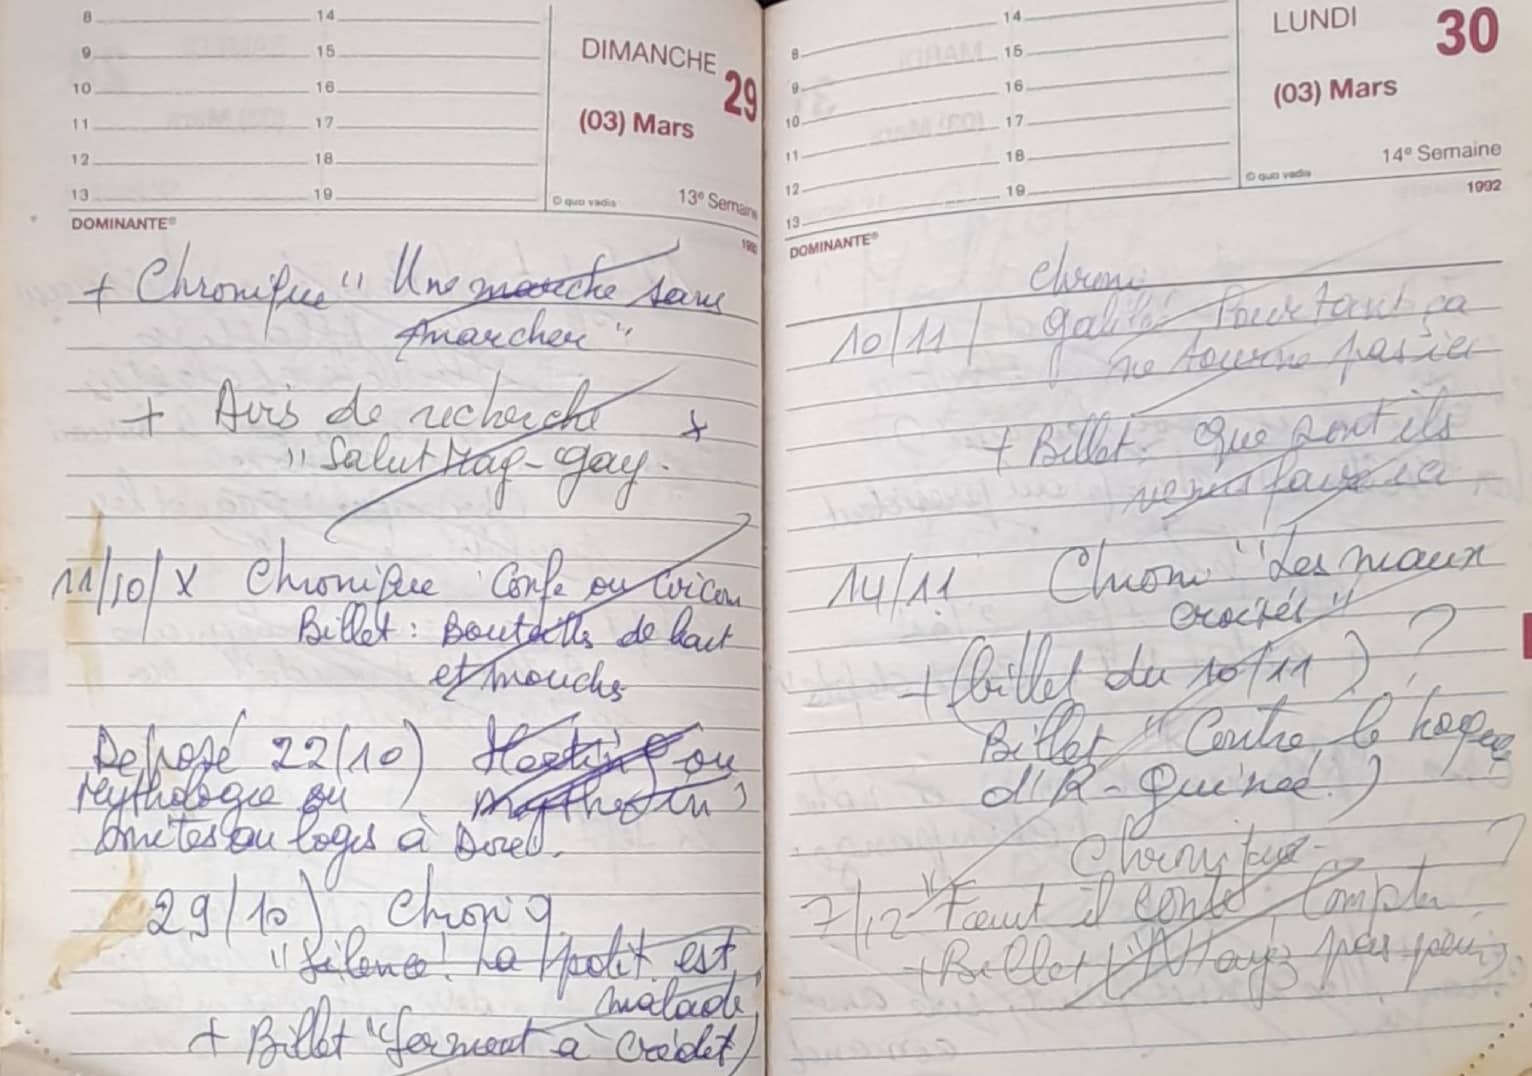 8 14
9 15
10 16
11 17
12 18
13 19
DIMANCHE 29
(03) Mars
© quo vadis
13e Semaine
DOMINANTE®
+ Chronique " Une marche sans
marcher "
+ Avis de recherche +
" Salut Mag-gay.
11/10/ X Chronique Confe ou
Billet: Bouteilles de
et mouches
Déposé 22/10) ou
Mythologie ou
ou logis à
29/10) Chroniq
"Silence! La polit est
malade,
+ Billet "Serment à crédit)
8 14
9 15
10 16
11 17
12 18
13 19
LUNDI 30
(03) Mars
© quo vadis
14e Semaine
1992
DOMINANTE®
Chroni
10/11/ Galilée Pourtant ça
ne tourne pas ici
+ Billet: Que sont ils
venus faire ici
14/11 Chroni " Les maux
crochés"
+ (billet du 10/11) ?
Billet " Contre le
d'R-Guinée.)
Chronique ?
7/12 " Faut il Compter
+ Billet ( pas peur,